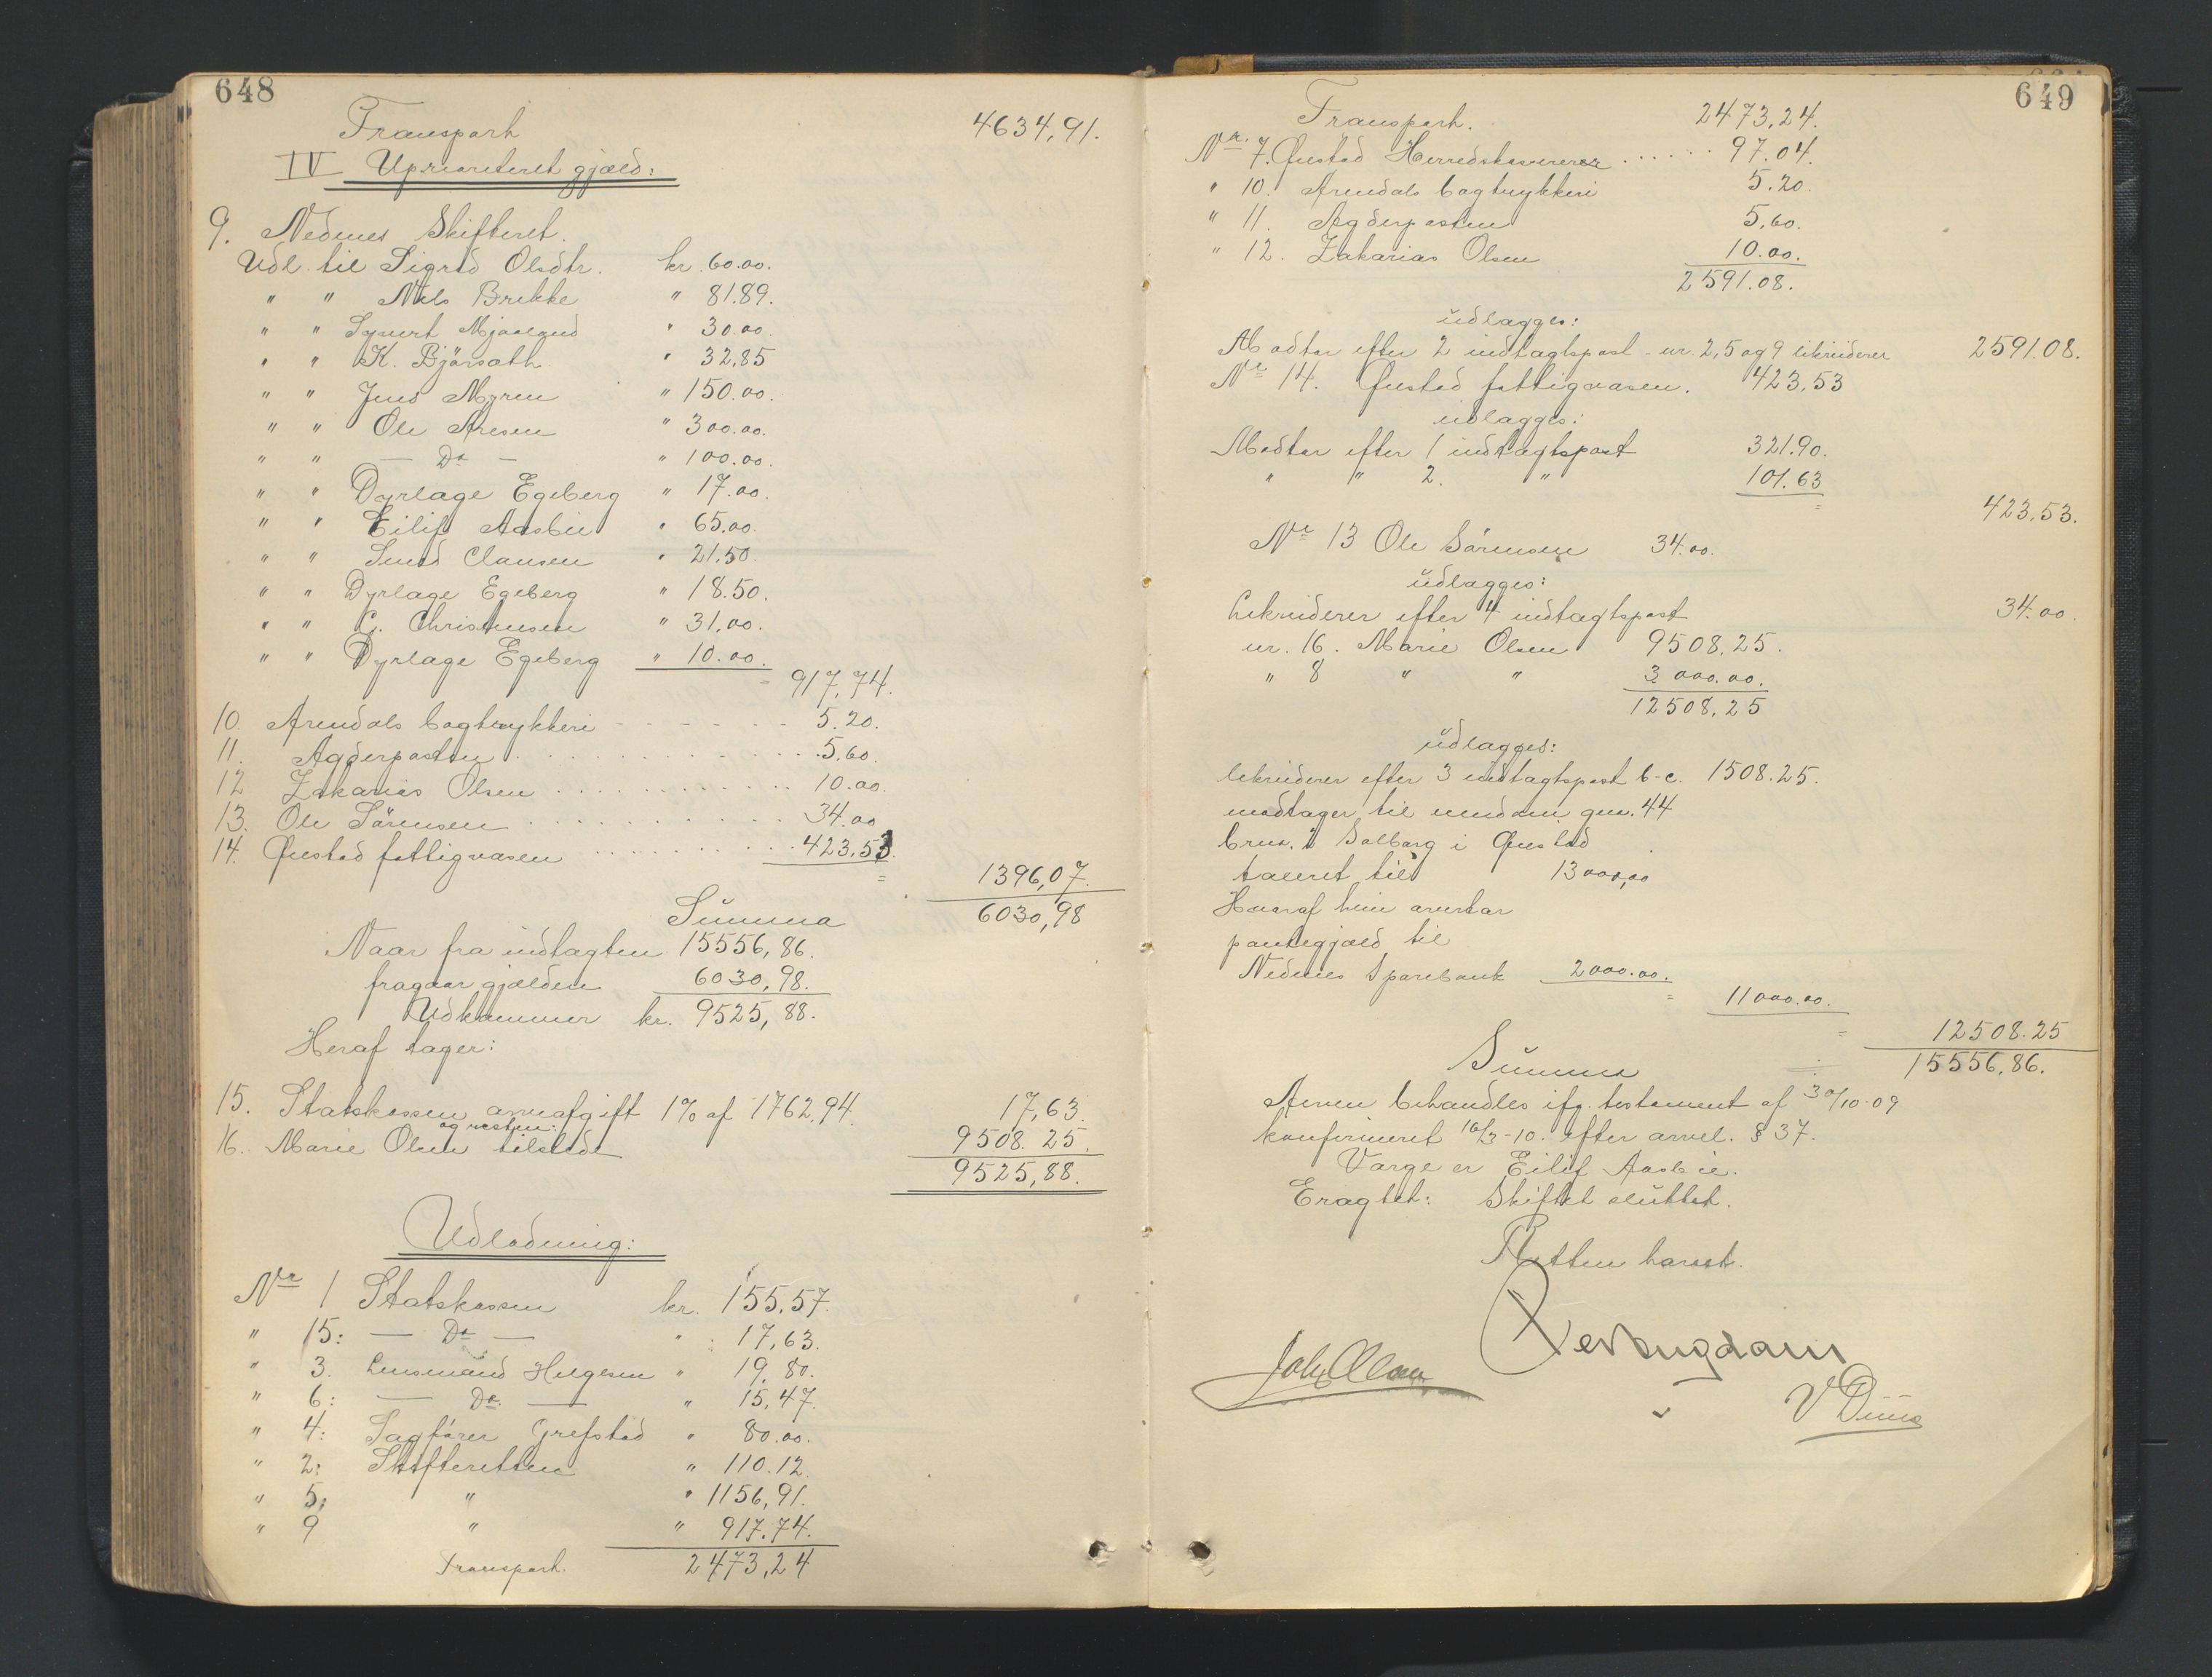 648
Transport 4634,91.
IV Uprioriteret gjæld:
9. Nedenes Skifteret.
Udl. til Sigrid Olsdtr. kr. 60.00.
" " Nils Brekke " 81.89.
" " Syvert Mjaaland " 30.00.
" " K. Bjorvath " 32,85
" " Jens Myren " 150.00.
" " Ole Aresen " 300.00.
" " — Do — " 100.00.
" " Dyrlæge Egeberg " 17.00.
" " Eilif Aasbie " 65.00.
" " Smed Clausen " 21.50.
" " Dyrlæge Egeberg " 18.50.
" " C. Christensen " 31,00.
" " Dyrlæge Egeberg " 10.00.
= 917,74.
10. Arendals bogtrykkeri 5.20.
11. Agderposten 5,60.
12 Zakarias Olsen 10.00.
13. Ole Sørensen 34.00
14. Øiestad fattigvæsen 423.53.
= 1396,07.
Summa 6030,98
Naar fra indtægten 15556,86.
fragaar gjælden 6030,98.
Udkommer kr. 9525,88.
Heraf tager:
15. Statskassen arveafgift 1% af 1762.94. 17,63.
og resten:
16. Marie Olsen tilstede 9508.25.
9525,88.
Udlodning:
Nr 1 Statskassen kr. 155.57.
" 15: — Do — " 17,63.
" 3. Lensmand Helgesen " 19.80.
" 6: — Do. — " 15,47.
" 4: Sagfører Grefstad " 80.00.
" 2: Skifteretten " 110.12.
" 5: " " 1156,91.
" 9 " " 917.74.
Transport. 2473,24
649
Transport. 2473,24.
Nr. 7. Øiestad Herredskasserer 97.04.
" 10. Arendals bogtrykkeri 5.20.
" 11. Agderposten 5,60.
" 12. Zakarias Olsen 10.00.
2591.08.
udlægges:
Modtar efter 2 indtægtspost - nr. 2,5 og 9 likviderer 2591.08.
Nr 14. Øiestad fattigvæsen. 423,53
udlægges:
Modtar efter 1 indtægtspost 321.90.
" " 2. " 101.63
= 423,53.
Nr 13 Ole Sørensen 34.00.
udlægges:
Likviderer efter 4 indtægtspost 34.00.
nr. 16. Marie Olsen 9508.25.
" 8 " " 3000.00.
12508,25
udlægges:
likviderer efter 3 indtægtspost b-c. 1508.25.
modtager til eiendom gnr. 44
brnr. 2 Solborg i Øiestad
taxeret til 13000,00
Hvoraf hun overtar
pantegjæld til
Nedenes Sparebank 2000.00.
= 11000.00.
= 12508.25
Summa 15556,86.
Arven behandles ifg. testament af 30/10-09
konfirmeret 16/3-10. efter arvel. § 37.
Værge er Eilif Aasbie.
Eragtet: Skiftet sluttet.
Retten hævet.
Joh Olsen
V Duus